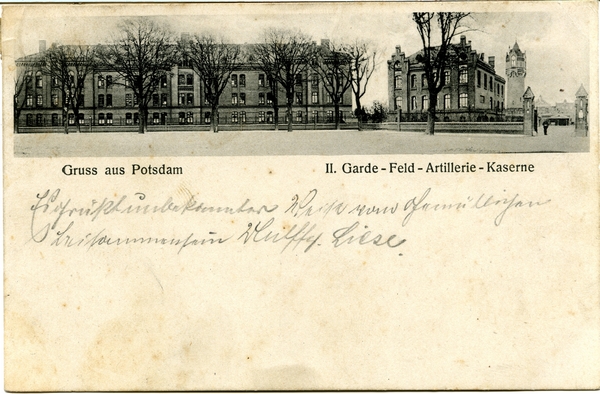 Gruss aus Potsdam
II. Garde-Feld-Artillerie-Kaserne
unbekannter Weise vom Gemütlichen
Beisammensein Liese.